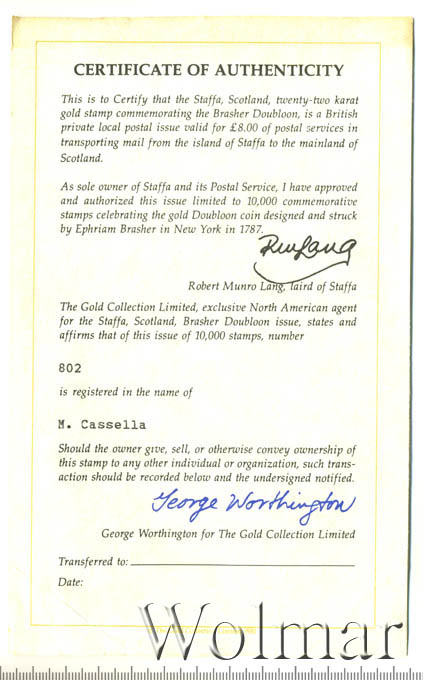 CERTIFICATE OF AUTHENTICITY
This is to Certify that the Staffa, Scotland, twenty-two karat
gold stamp commemorating the Brasher Doubloon, is a British
private local postal issue valid for £8.00 of postal services in
transporting mail from the island of Staffa to the mainland of
Scotland.
As sole owner of Staffa and its Postal Service, I have approved
and authorized this issue limited to 10,000 commemorative
stamps celebrating the gold Doubloon coin designed and struck
by Ephriam Brasher in New York in 1787.
Robert Munro Lang, laird of Staffa
The Gold Collection Limited, exclusive North American agent
for the Staffa, Scotland, Brasher Doubloon issue, states and
affirms that of this issue of 10,000 stamps, number
802
is registered in the name of
M. Cassella
Should the owner give, sell, or otherwise convey ownership of
this stamp to any other individual or organization, such trans-
action should be recorded below and the undersigned notified.
George Worthington
George Worthington for The Gold Collection Limited
Transferred to:
Date:
Wolmar